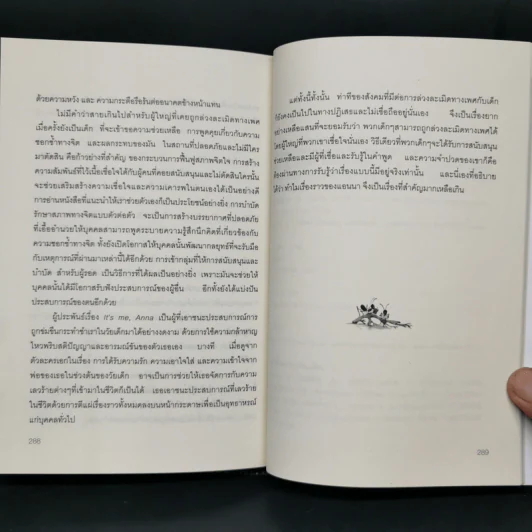 ด้วยความหวัง และ ความกระตือรือร้นต่ออนาคตข้างหน้าแทน
ไม่มีคำว่าสายเกินไปสำหรับผู้ใหญ่ที่เคยถูกล่วงละเมิดทางเพศ
เมื่อครั้งยังเป็นเด็ก ที่จะเข้าขอความช่วยเหลือ การพูดคุยเกี่ยวกับความ
ชอกช้ำทางจิต และผลกระทบของมัน ในสถานที่ปลอดภัยและไม่มีใคร
มาตัดสิน คือก้าวย่างที่สำคัญ ของกระบวนการฟื้นฟูสภาพจิตใจ การสร้าง
ความสัมพันธ์ที่ไว้เนื้อเชื่อใจได้กับผู้คนที่คอยสนับสนุนและไม่ตัดสินใครนั้น
จะช่วยเสริมสร้างความเชื่อใจและความเคารพในตนเองได้เป็นอย่างดี
การอ่านหนังสือที่แนะนำให้เราช่วยตัวเองก็เป็นประโยชน์อย่างยิ่ง การบำบัด
รักษาสภาพทางจิตแบบตัวต่อตัว จะเป็นการสร้างบรรยากาศที่ปลอดภัย
ที่เอื้ออำนวยให้บุคคลสามารถพูดระบายความรู้สึกนึกคิดที่เกี่ยวข้องกับ
ความชอกช้ำทางจิต ทั้งยังเปิดโอกาสให้บุคคลนั้นพัฒนากลยุทธ์ที่จะรับมือ
กับเหตุการณ์ที่ผ่านมาเหล่านี้ได้อีกด้วย การเข้ากลุ่มที่ให้การสนับสนุนและ
บำบัด สำหรับผู้รอด เป็นวิธีการที่ได้ผลเป็นอย่างยิ่ง เพราะมันจะช่วยให้
บุคคลนั้นได้มีโอกาสรับฟังประสบการณ์ของผู้อื่น อีกทั้งยังได้แบ่งปัน
ประสบการณ์ของตนอีกด้วย
ผู้ประพันธ์เรื่อง It's me, Anna เป็นผู้ที่เอาชนะประสบการณ์การ
ถูกข่มขืนกระทำชำเราในวัยเด็กมาได้อย่างงดงาม ด้วยการใช้ความกล้าหาญ
ไหวพริบสติปัญญาและอารมณ์ขันของตัวเธอเอง บางที เมื่อดูจาก
ตัวละครเอกในเรื่อง การได้รับความรัก ความเอาใจใส่ และความเข้าใจจาก
พ่อของเธอในช่วงต้นของวัยเด็ก อาจเป็นการช่วยให้เธอจัดการกับความ
เลวร้ายต่างๆที่เข้ามาในชีวิตก็เป็นได้ เธอเอาชนะประสบการณ์ที่เลวร้าย
ในชีวิตด้วยการตีแผ่เรื่องราวทั้งหมดลงบนหน้ากระดาษเพื่อเป็นอุทาหรณ์
แก่บุคคลทั่วไป
288
แต่ทั้งนี้ทั้งนั้น ท่าทีของสังคมที่มีต่อการล่วงละเมิดทางเพศกับเด็ก
ก็ยังคงเป็นไปในทางปฏิเสธและไม่เชื่อถืออยู่นั่นเอง จึงเป็นเรื่องยาก
อย่างเหลือแสนที่จะยอมรับว่า พวกเด็กๆสามารถถูกล่วงละเมิดทางเพศได้
โดยผู้ใหญ่ที่พวกเขาเชื่อใจนั่นเอง วิธีเดียวที่พวกเด็กๆจะได้รับการสนับสนุน
ช่วยเหลือและมีผู้ที่เชื่อและรับรู้ในคำพูด และความเจ็บปวดของเขาก็คือ
ต้องผ่านทางการรับรู้ว่าเรื่องแบบนี้มีอยู่จริงเท่านั้น และนี่เองที่อธิบาย
ได้ว่า ทำไมเรื่องราวของแอนนา จึงเป็นเรื่องที่สำคัญมากเหลือเกิน
289